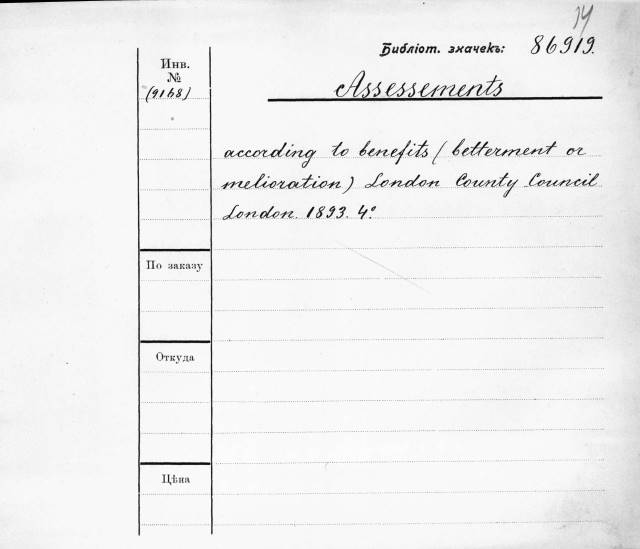 14
Библіот. значекъ: 86919.
Инв.
№
(9168)
Assessements
according to benefits (betterment or
melioration) London County Council
London. 1893. 4°
По заказу
Откуда
Цѣна